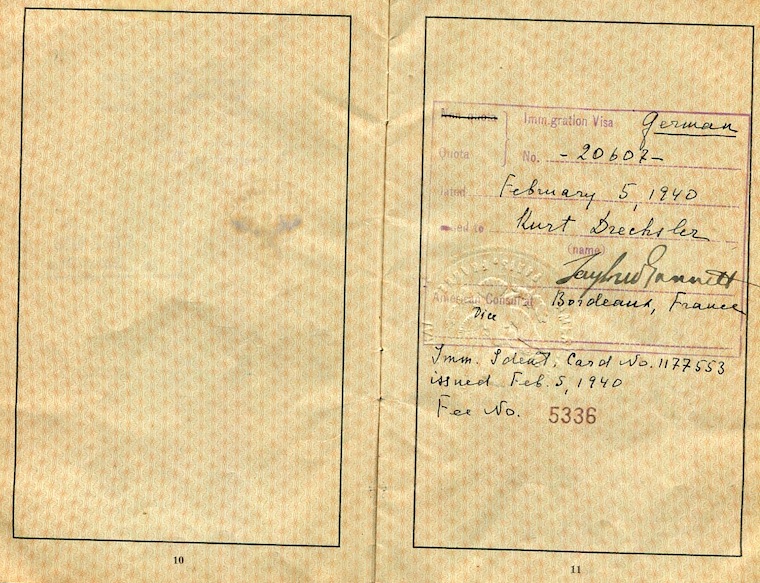 Non quota
Immigration Visa German
Quota
No. - 20607 -
dated February 5, 1940
issued to Kurt Drechsler
(name)
American Consul at Bordeaux, France
Vice
Imm. Ident. Card No. 1177553
issued Feb. 5, 1940
Fee No. 5336
10
11